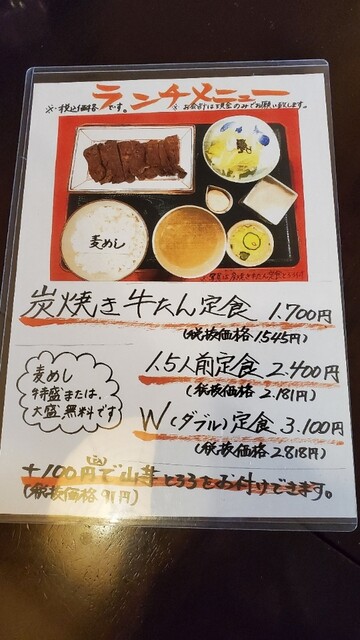 ランチメニュー
※税込価格です。 ※お会計は現金のみでお願い致します。
麦めし
炭焼き牛たん定食 1.700円
(税抜価格1545円)
麦めし
特盛または、
大盛無料です
1.5人前定食 2.400円
(税抜価格2.181円)
W(ダブル)定食 3.100円
(税抜価格2818円)
+100円で山芋とろろをお付けできます。
(税抜価格91円)